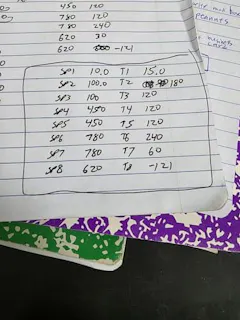 450 120
780 120
780 240
620 30
620 -121
SP1 10.0 T1 15.0
SP2 100.0 T2 180
SP3 100 T3 120
SP4 450 T4 120
SP5 450 T5 120
SP6 780 T6 240
SP7 780 T7 60
SP8 620 T8 -121
and
peanuts